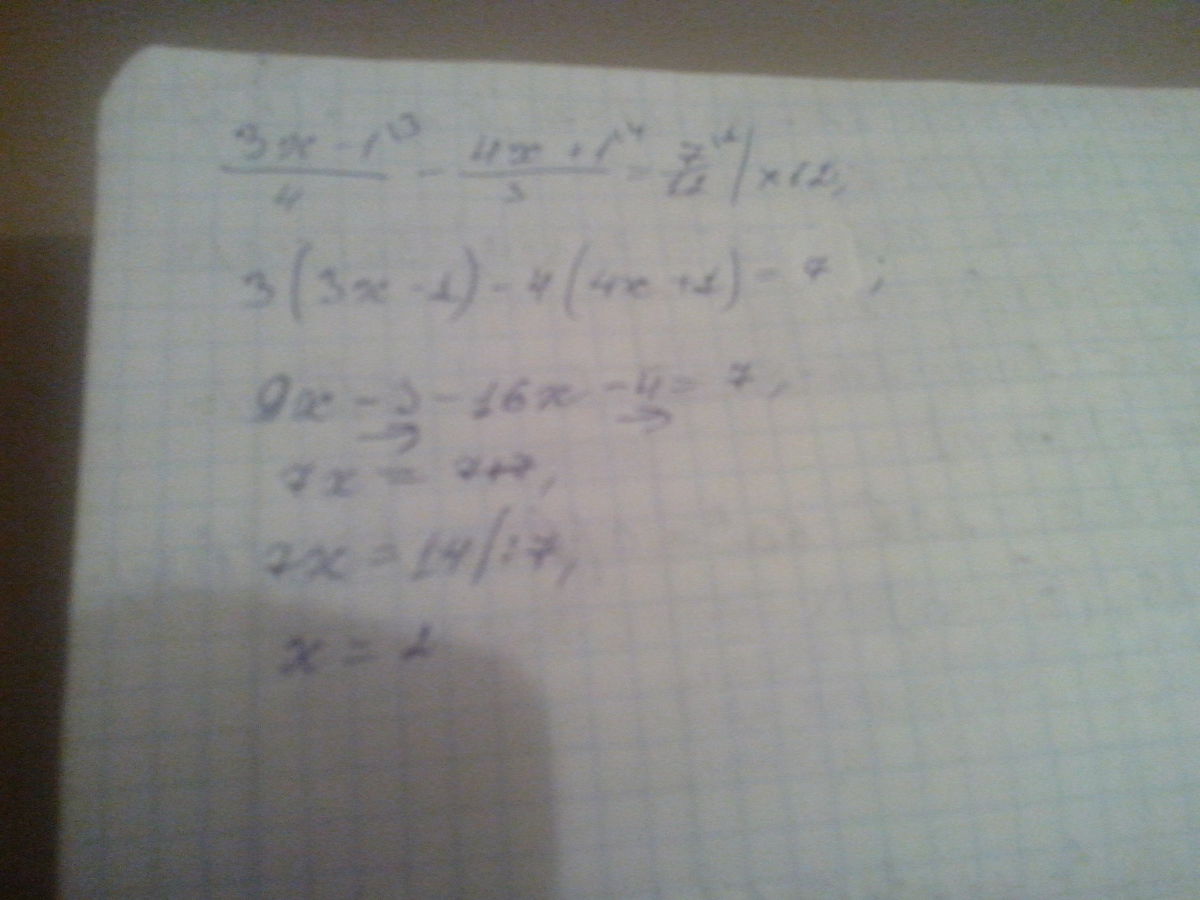 (3x - 1)/4 - (4x + 1)/3 = 7/12 | × 12;
3(3x - 1) - 4(4x + 1) = 7;
9x - 3 - 16x - 4 = 7;
7x = 7+7;
7x = 14 | : 7;
x = 2